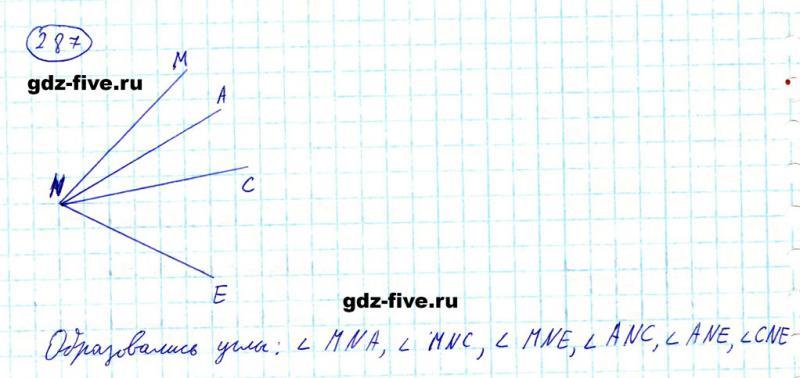 287
M
gdz-five.ru
A
N
C
E
gdz-five.ru
Образовались углы: ∠ MNA, ∠ MNC, ∠ MNE, ∠ ANC, ∠ ANE, ∠ CNE